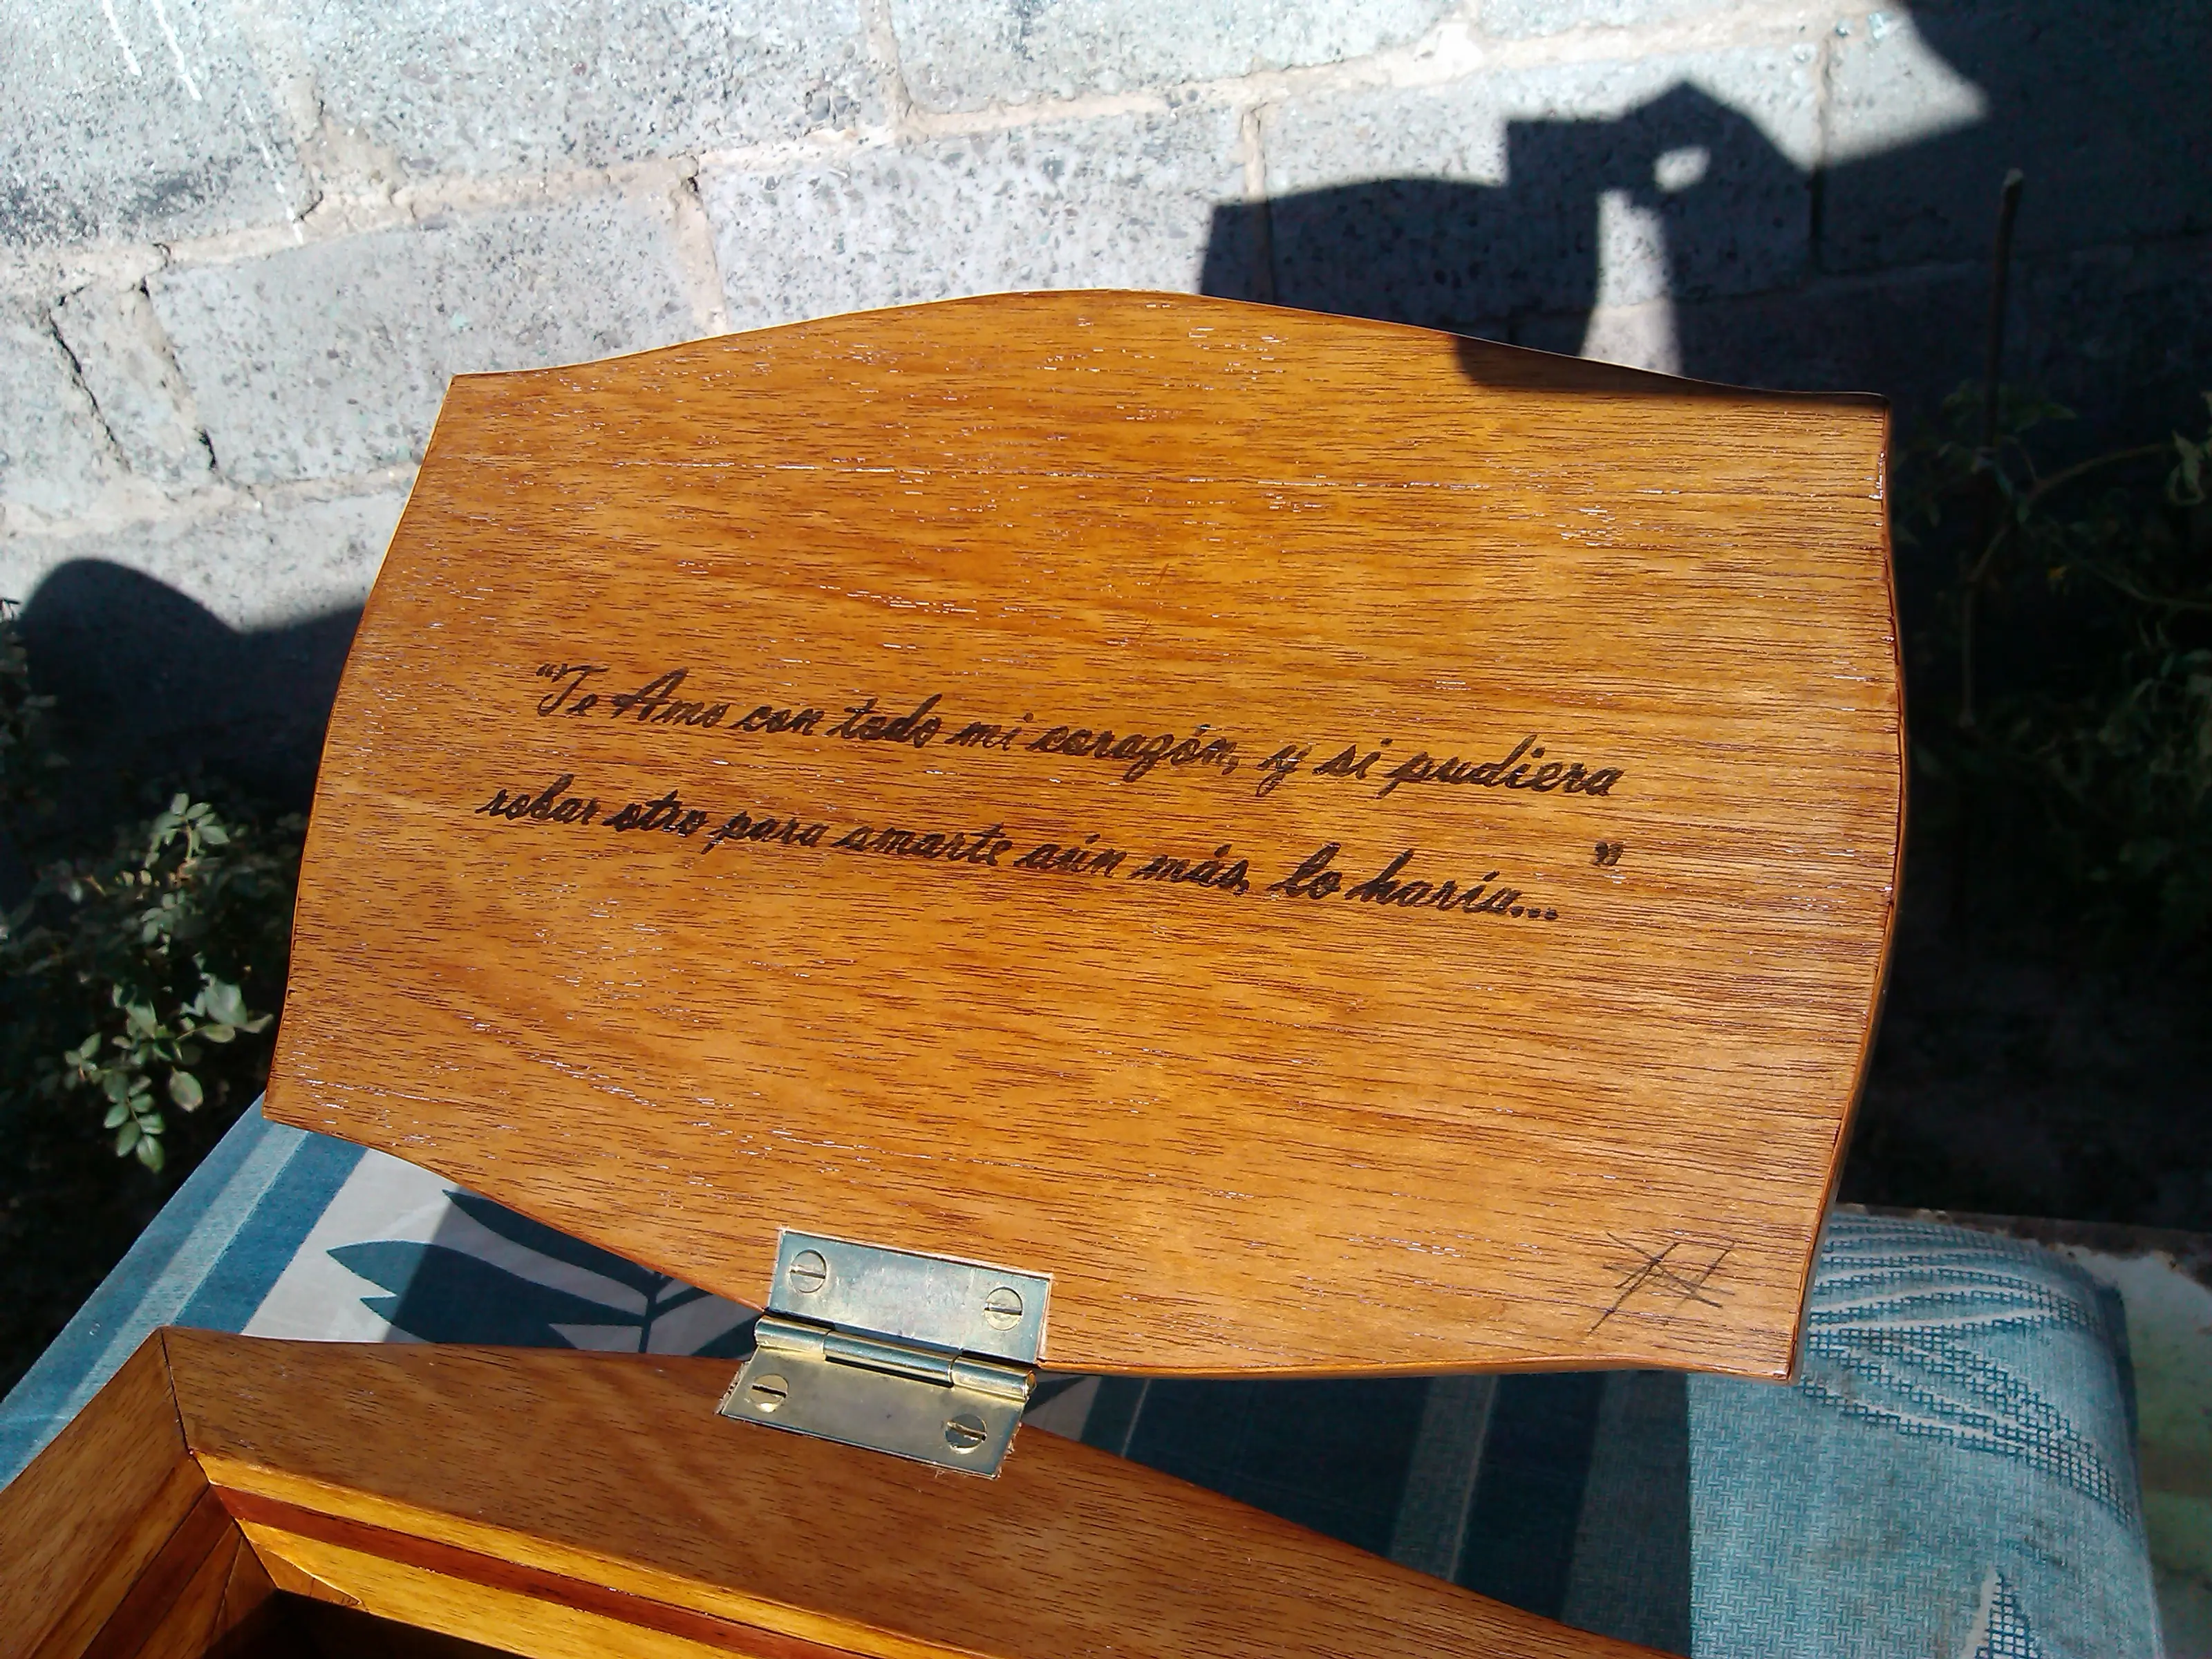 "Te Amo con todo mi corazón, y si pudiera
robar otro para amarte aún más, lo haría..."